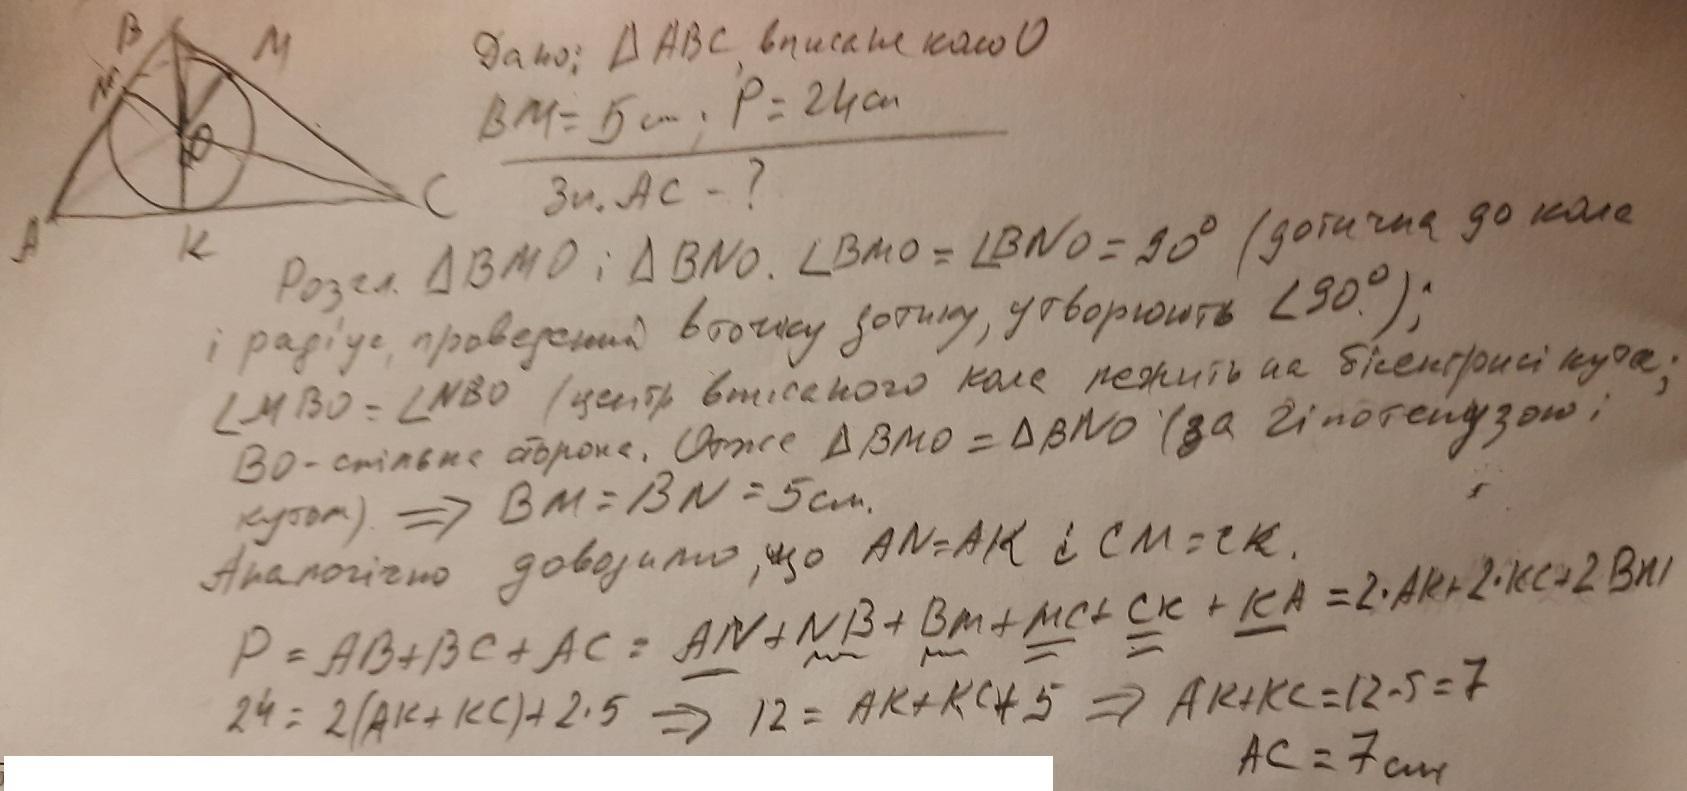 B
M
N
O
A
K
C
Дано: ΔABC, вписане коло O
BM = 5 см; P = 24 см
Зн. AC - ?
Розгл. ΔBMO і ΔBNO. ∠BMO = ∠BNO = 90° (дотична до кола
і радіус, проведений в точку дотику, утворюють ∠90°);
∠MBO = ∠NBO (центр вписаного кола лежить на бісектрисі кута;
BO - спільна сторона. Отже ΔBMO = ΔBNO (за гіпотенузою і
кутом) ⇒ BM = BN = 5 см.
Аналогічно доводимо, що AN = AK і CM = CK.
P = AB + BC + AC = AN + NB + BM + MC + CK + KA = 2·AK + 2·KC + 2BM
24 = 2(AK + KC) + 2·5 ⇒ 12 = AK + KC + 5 ⇒ AK + KC = 12 - 5 = 7
AC = 7 см